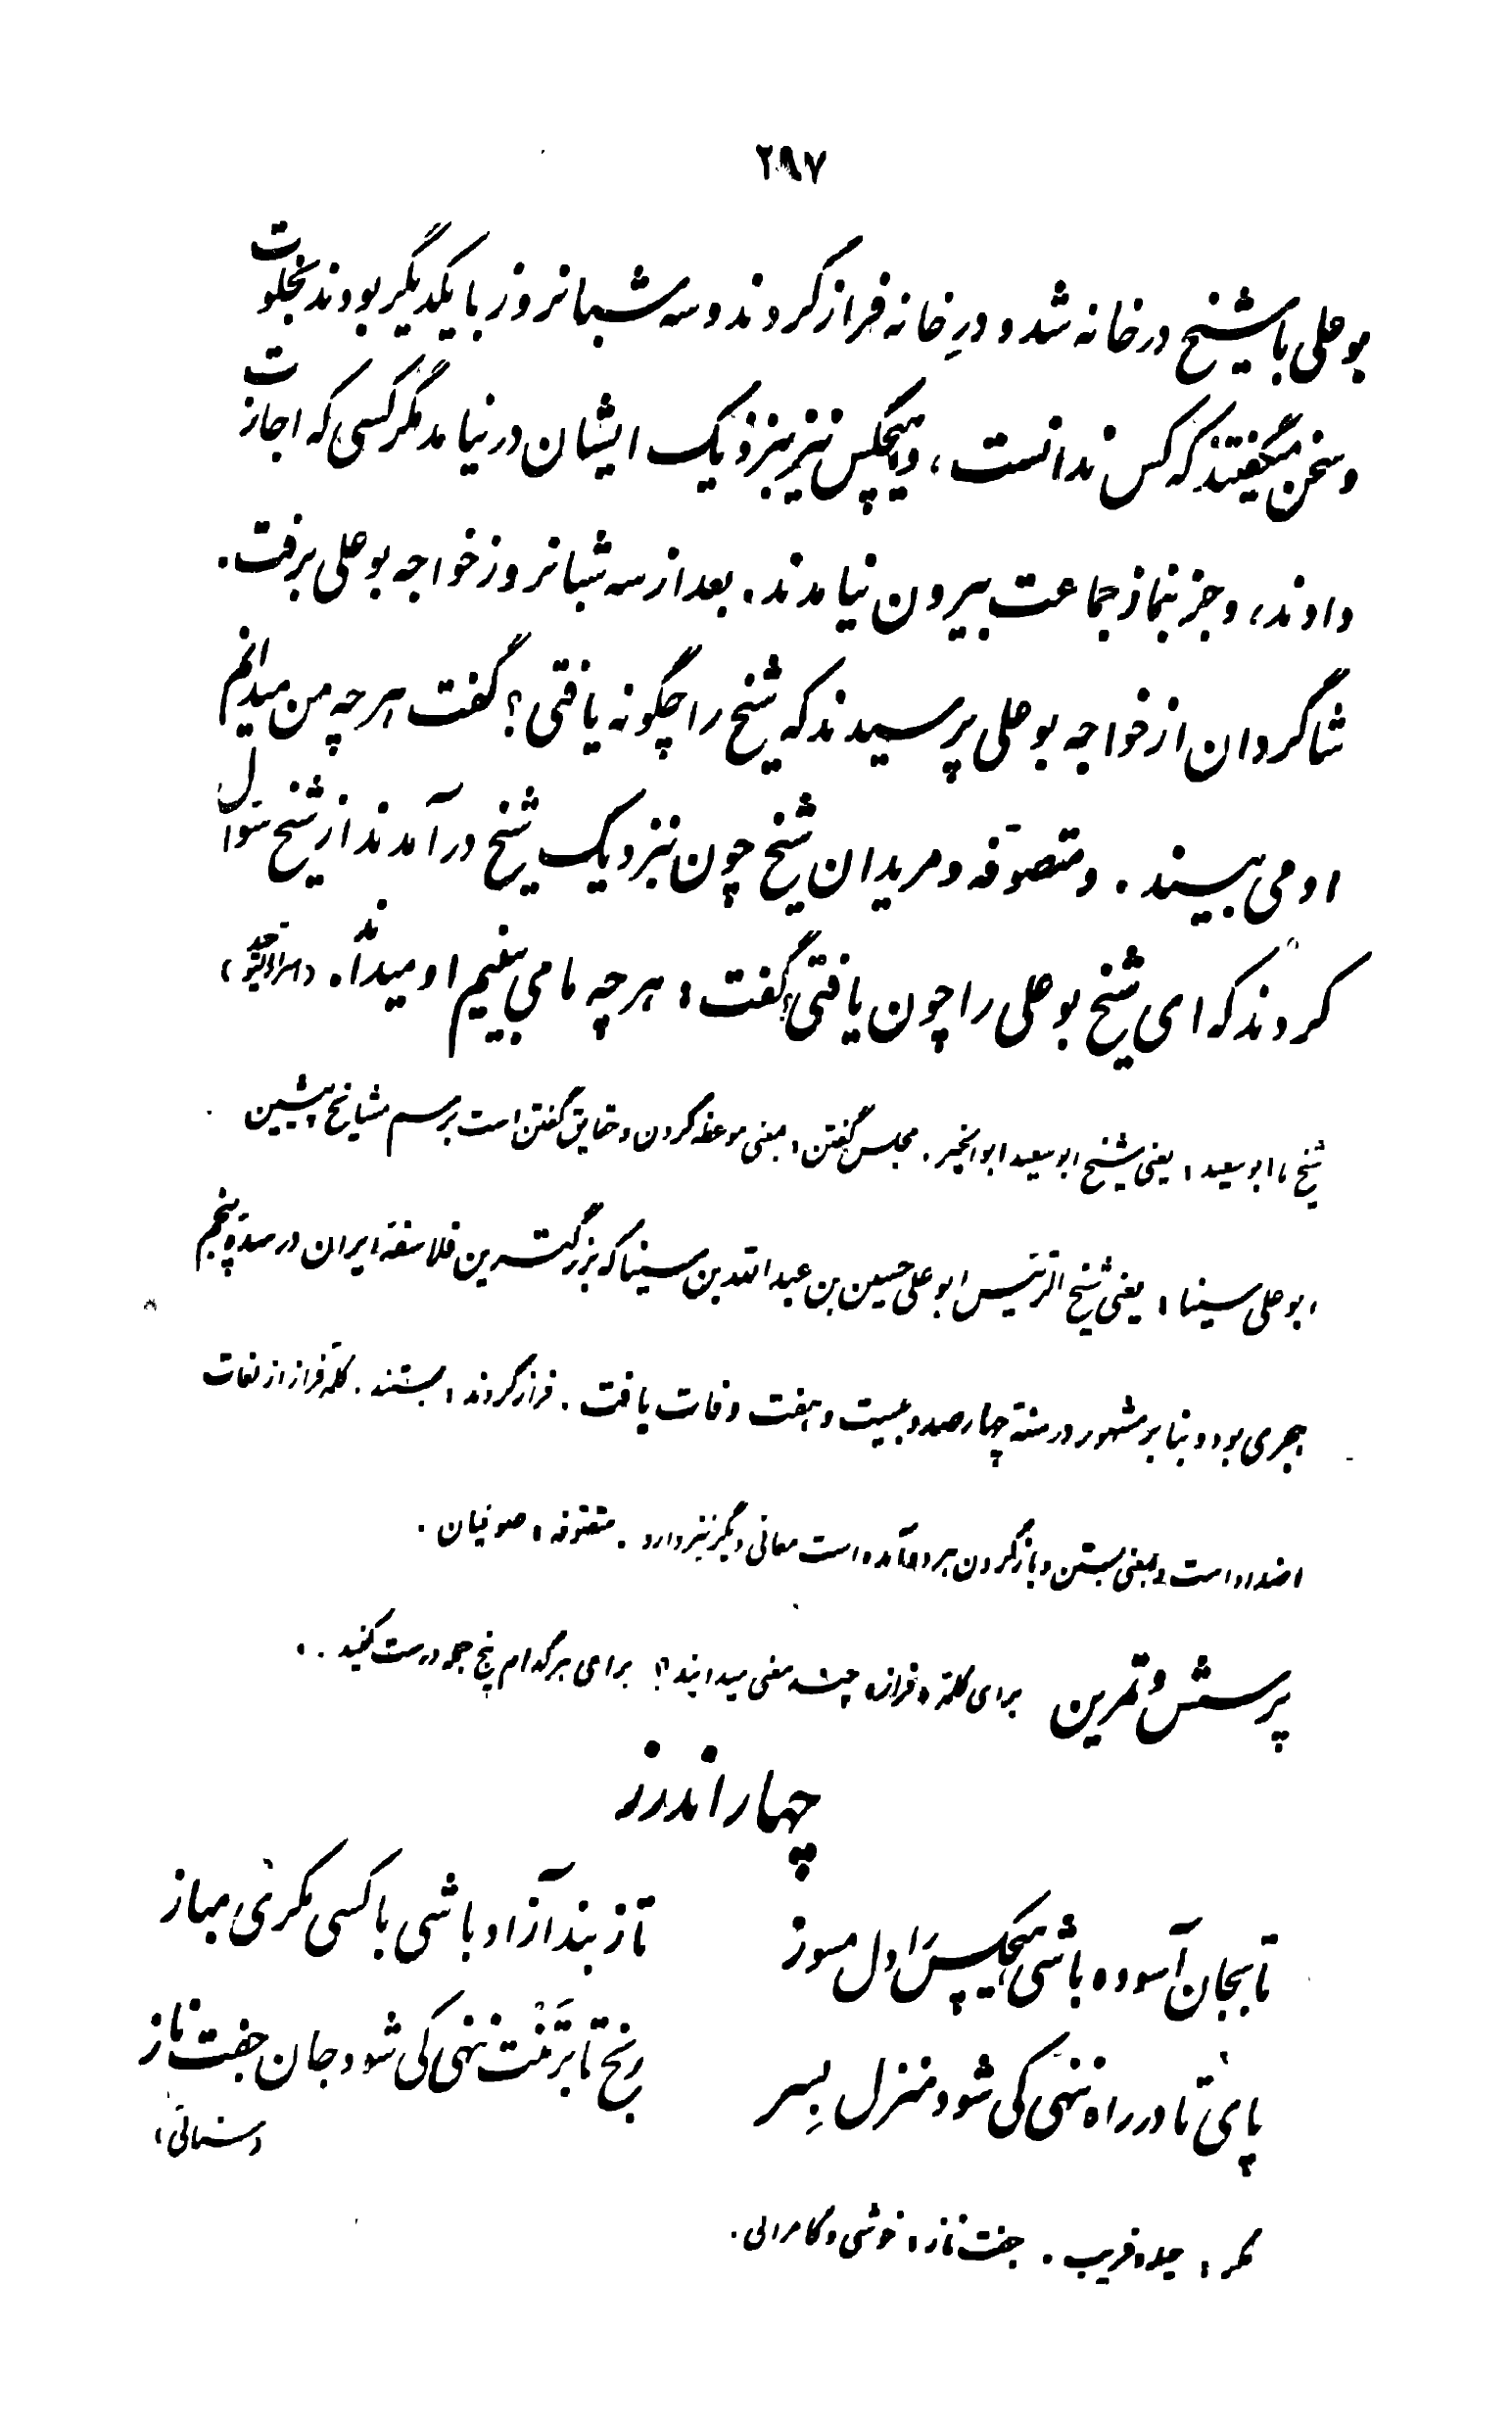 ۲۹۷
بوعلی با شیخ در خانه شد و درِ خانه فراز کردند و سه شبانروز با یکدیگر بودند بخلوت
و سخن میگفتند که کس ندانست، و هیچکس نیز بنزدیک ایشان در نیامد مگر کسی که اجازت
دادند، و جز بنماز جماعت بیرون نیامدند. بعد از سه شبانروز خواجه بوعلی برفت.
شاگردان از خواجه بوعلی پرسیدند که شیخ را چگونه یافتی؟ گفت هر چه من میدانم
او می بیند. و متصوّفه و مریدان شیخ چون بنزدیک شیخ در آمدند از شیخ سؤال
کردند که ای شیخ بوعلی را چون یافتی؟ گفت: هر چه ما می بینیم او میداند. (اسرارالتوحید)
شیخ ما ابوسعید: یعنی شیخ ابوسعید ابوالخیر. مجلس گفتن: بمعنی موعظه کردن و حقایق گفتن است برسم مشایخ پیشین
ابوعلی سینا: یعنی شیخ الرئیس ابوعلی حسین بن عبدالله بن سینا که بزرگترین فلاسفهٔ ایران در سدهٔ پنجم
هجری بود و بنا بر مشهور در سنهٔ چهارصد و بیست و هفت وفات یافت. فراز کردند: بستند. کلمهٔ فراز از لغات
اضداد است و بمعنی بستن و باز کردن هر دو آمده است معانی دیگر نیز دارد. متصوّفه: صوفیان.
پرسش و تمرین برای کلمهٔ «فراز» چند معنی میدانید؟ برای هر کدام پنج جمله درست کنید.
چهار اندرز
تا بجان آسوده باشی هیچکس را دل مسوز تا ز بند آزاد باشی با کسی مکری مباز
پای تا در راه ننهی کی شود منزل بسِر رنج تا بر تنت ننهی کی شود جان جفت ناز
(سنائی)
مکر: حیله و فریب. جفت ناز: خوشی و کامرانی.